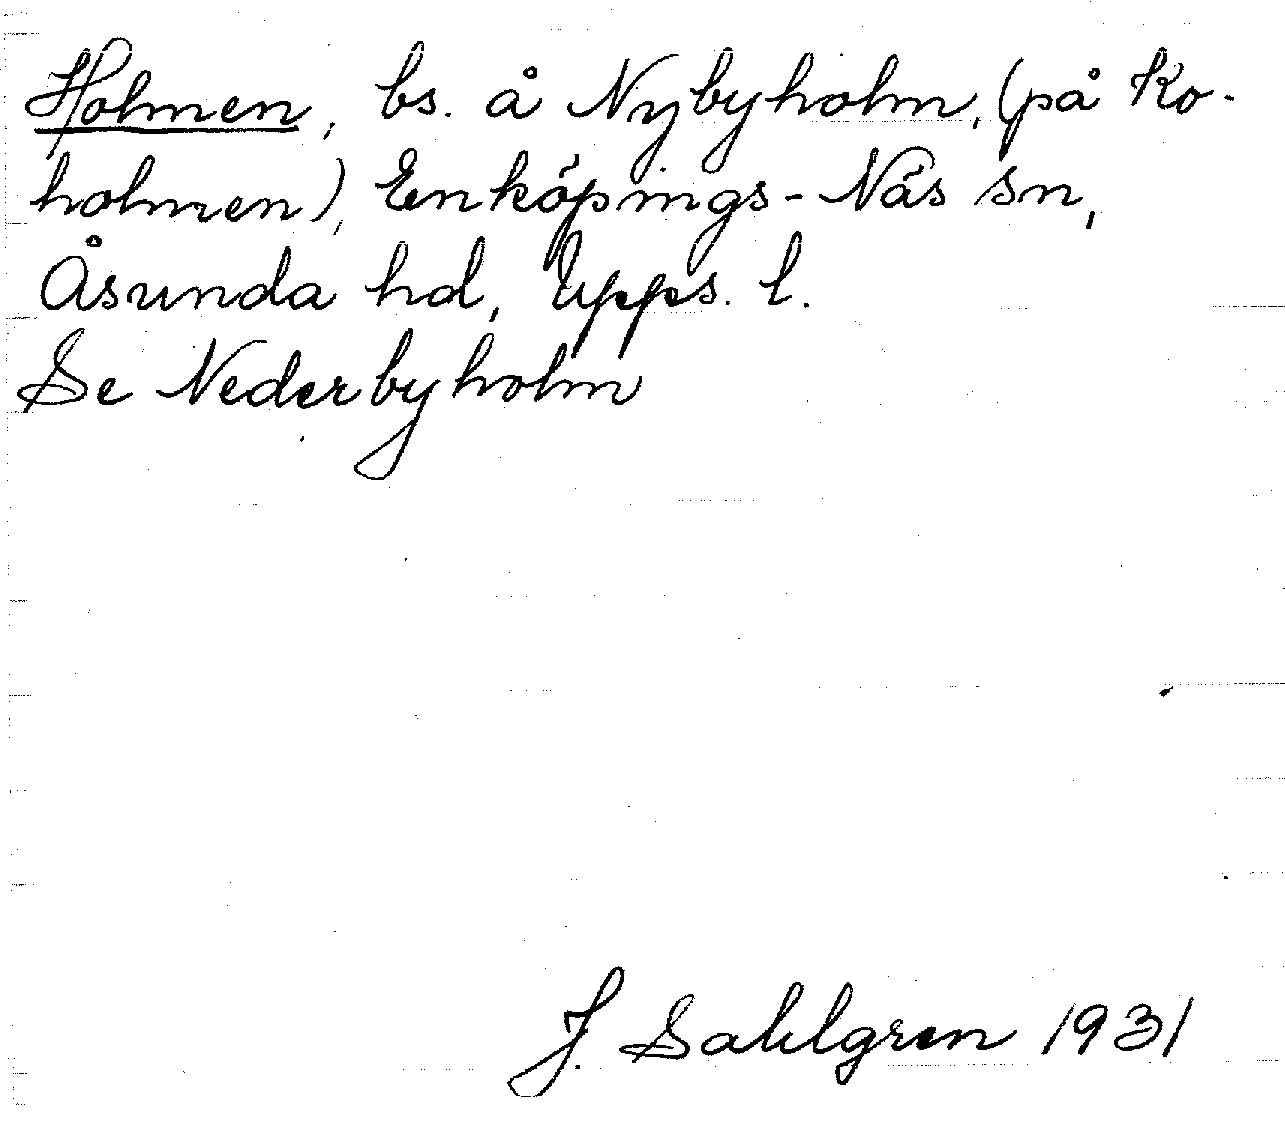 Holmen, bs. å Nybyholm, (på Ko-
holmen), Enköpings-Näs sn,
Åsunda hd, Upps. l.
Se Nederbyholm
J. Sahlgren 1931